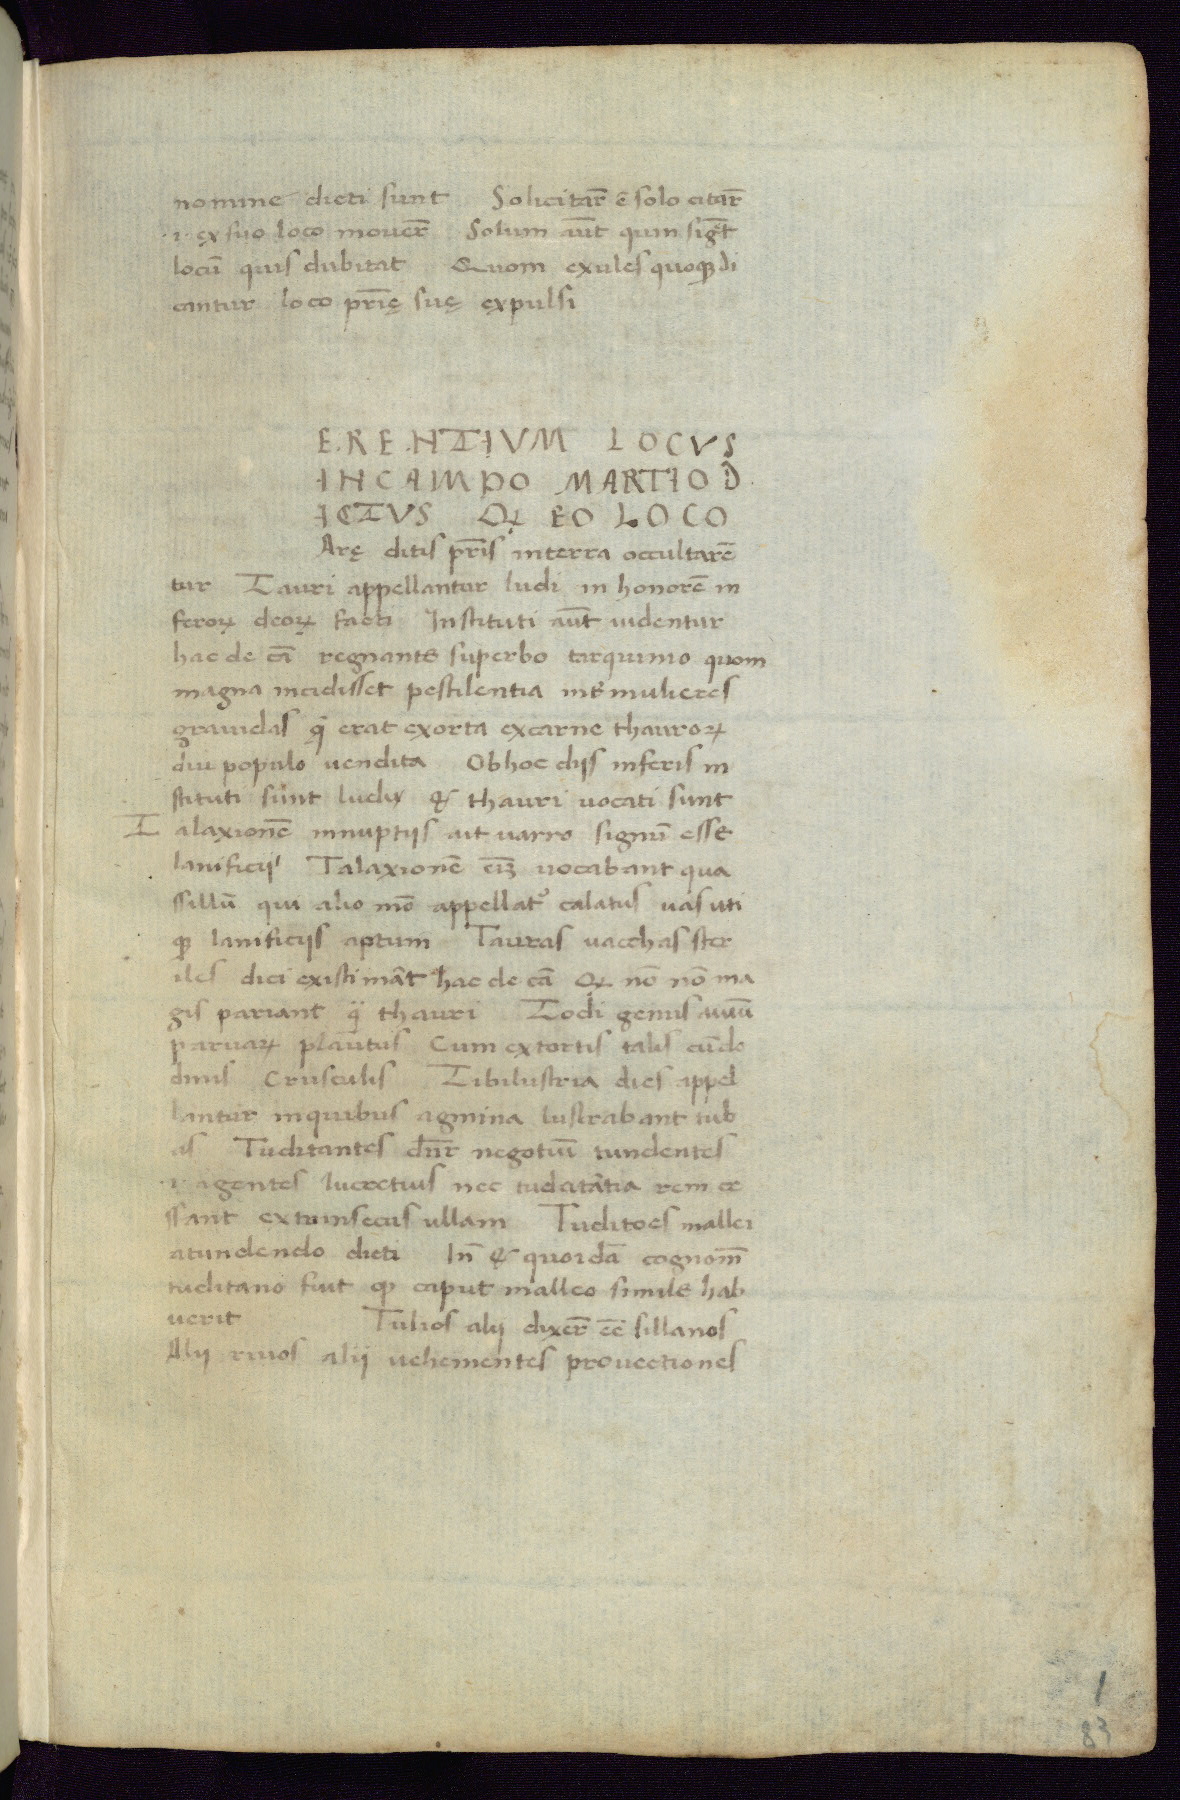 nomine dicti sunt Solicitar̄ ē solo citar̄
·i· ex suo loco mouer̄ Solum aūt quin sigēt
locū quis dubitat Quom exules quoqꝫ di
cantur loco pr̄ię suę expulsi
E.RE.NTIVM LOCVS
INCAMPO MARTIO D̄
ICTVS Qꝫ EO LOCO
Arę ditis pr̄is interra occultarē
tur Tauri appellantur ludi in honorē in
feroꝝ deoꝝ facti Instituti aūt uidentur
hac de cā regnante superbo tarquinio quom
magna incidisset pestilentia int̄ mulieres
grauidas q̄ erat exorta excarne thauroꝝ
diu populo uendita Obhoc dijs inferis in
stituti sunt ludi & thauri uocati sunt
Talaxionē innuptijs ait varro signū esse
lanificij Talaxionē eīz vocabant qua
ssillū qui alio mō appellatᵉ calatus uas uti
qꝫ lanificijs aptum Tauras vacchas ster
iles dici existimāt hac de cā qꝫ nō nō ma
gis pariant q̄ thauri Todi genus auiū
paruaꝝ plautus Cum extortis talis cū do
dinis Crusculis Tibilustria dies appel
lantur inquibus agmina lustrabant tub
as Tuditantes dnr̄ negotiū tundentes
·i· agentes lucretius nec tuditātia rem ce
ssant extrinsecus ullam Tuditoes mallei
atundendo dicti In̄ & quoidā cognom̄
tuditano fuit qꝫ caput malleo simile hab
uerit Tulios alij dixer̄ eē sillanos
Alij riuos alij uehementes prouectiones
1
83